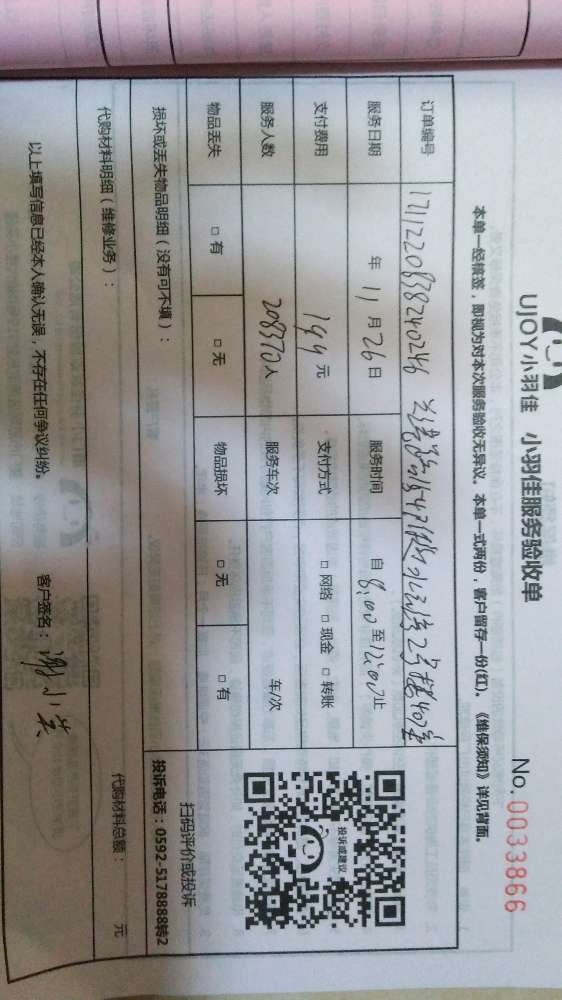 UJOY小羽佳 小羽佳服务验收单
No.0033866
本单一经核签，即视为对本次服务验收无异议。本单一式两份，客户留存一份(红)。《维保须知》详见背面。
订单编号 1711220838240246 2号楼407室
服务日期 年 11 月 26 日 服务时间 自 8:00 至 12:00 止
支付费用 199 元 支付方式 □ 网络 □ 现金 □ 转账
服务人数 208370 人 服务车次 车/次
物品丢失 □ 有 □ 无 物品损坏 □ 无 □ 有
投诉或建议
扫码评价或投诉
投诉电话：0592-5178888转2
损坏或丢失物品明细（没有可不填）：
代购材料明细（维修业务）： 代购材料总额： 元
以上填写信息已经本人确认无误，不存在任何争议纠纷。 客户签名：